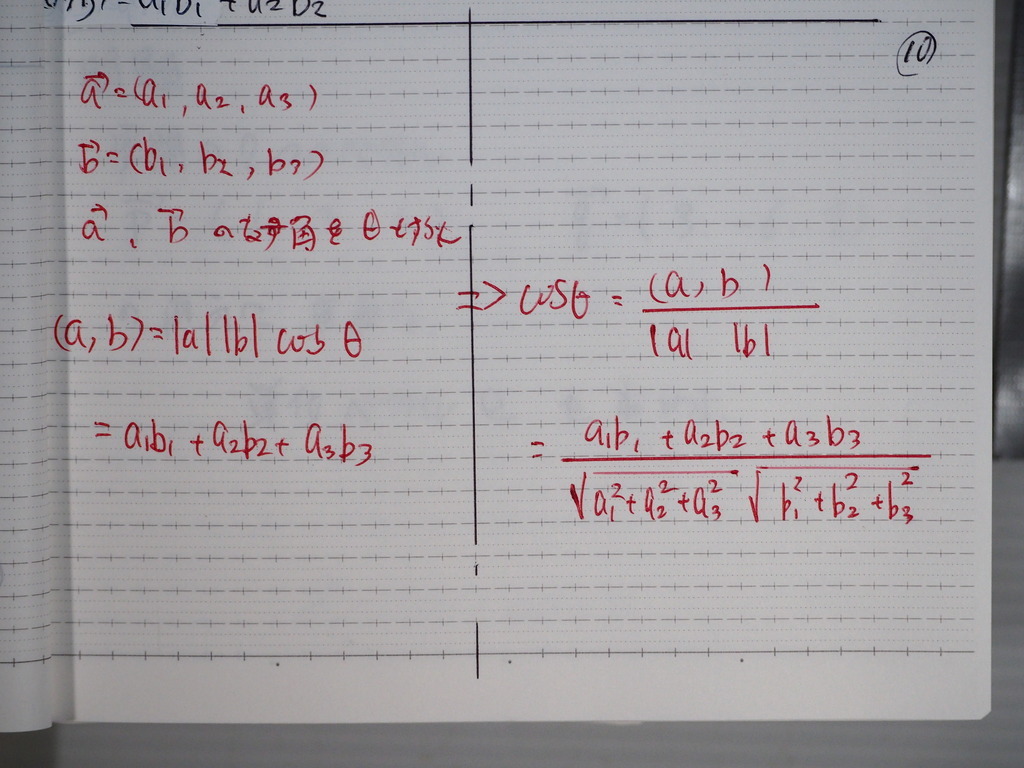 = a₁b₁ + a₂b₂
⑩
a⃗=(a₁, a₂, a₃)
b⃗=(b₁, b₂, b₃)
a⃗、b⃗ のなす角をθとすると
(a, b)=|a||b| cos θ
= a₁b₁ + a₂b₂ + a₃b₃
=> cosθ = (a, b) / |a| |b|
= a₁b₁ + a₂b₂ + a₃b₃ / √a₁²+a₂²+a₃² √b₁²+b₂²+b₃²